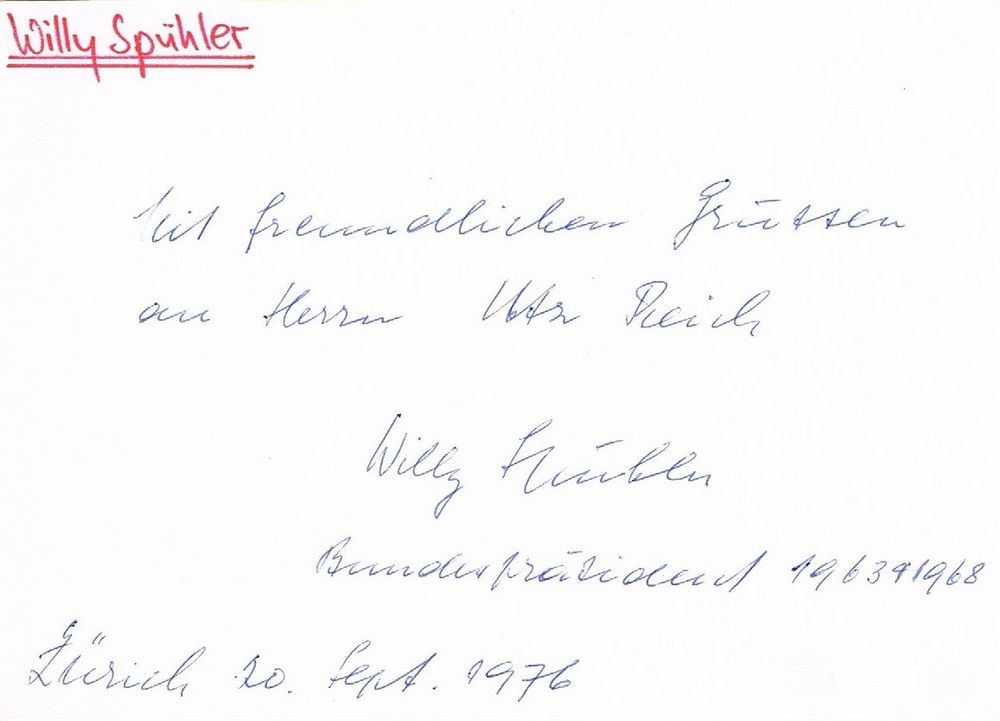 Willy Spühler
Mit freundlichen Grüssen
an Herrn Utz Reich
Willy Spühler
Bundespräsident 1963+1968
Zürich 20. Sept. 1976